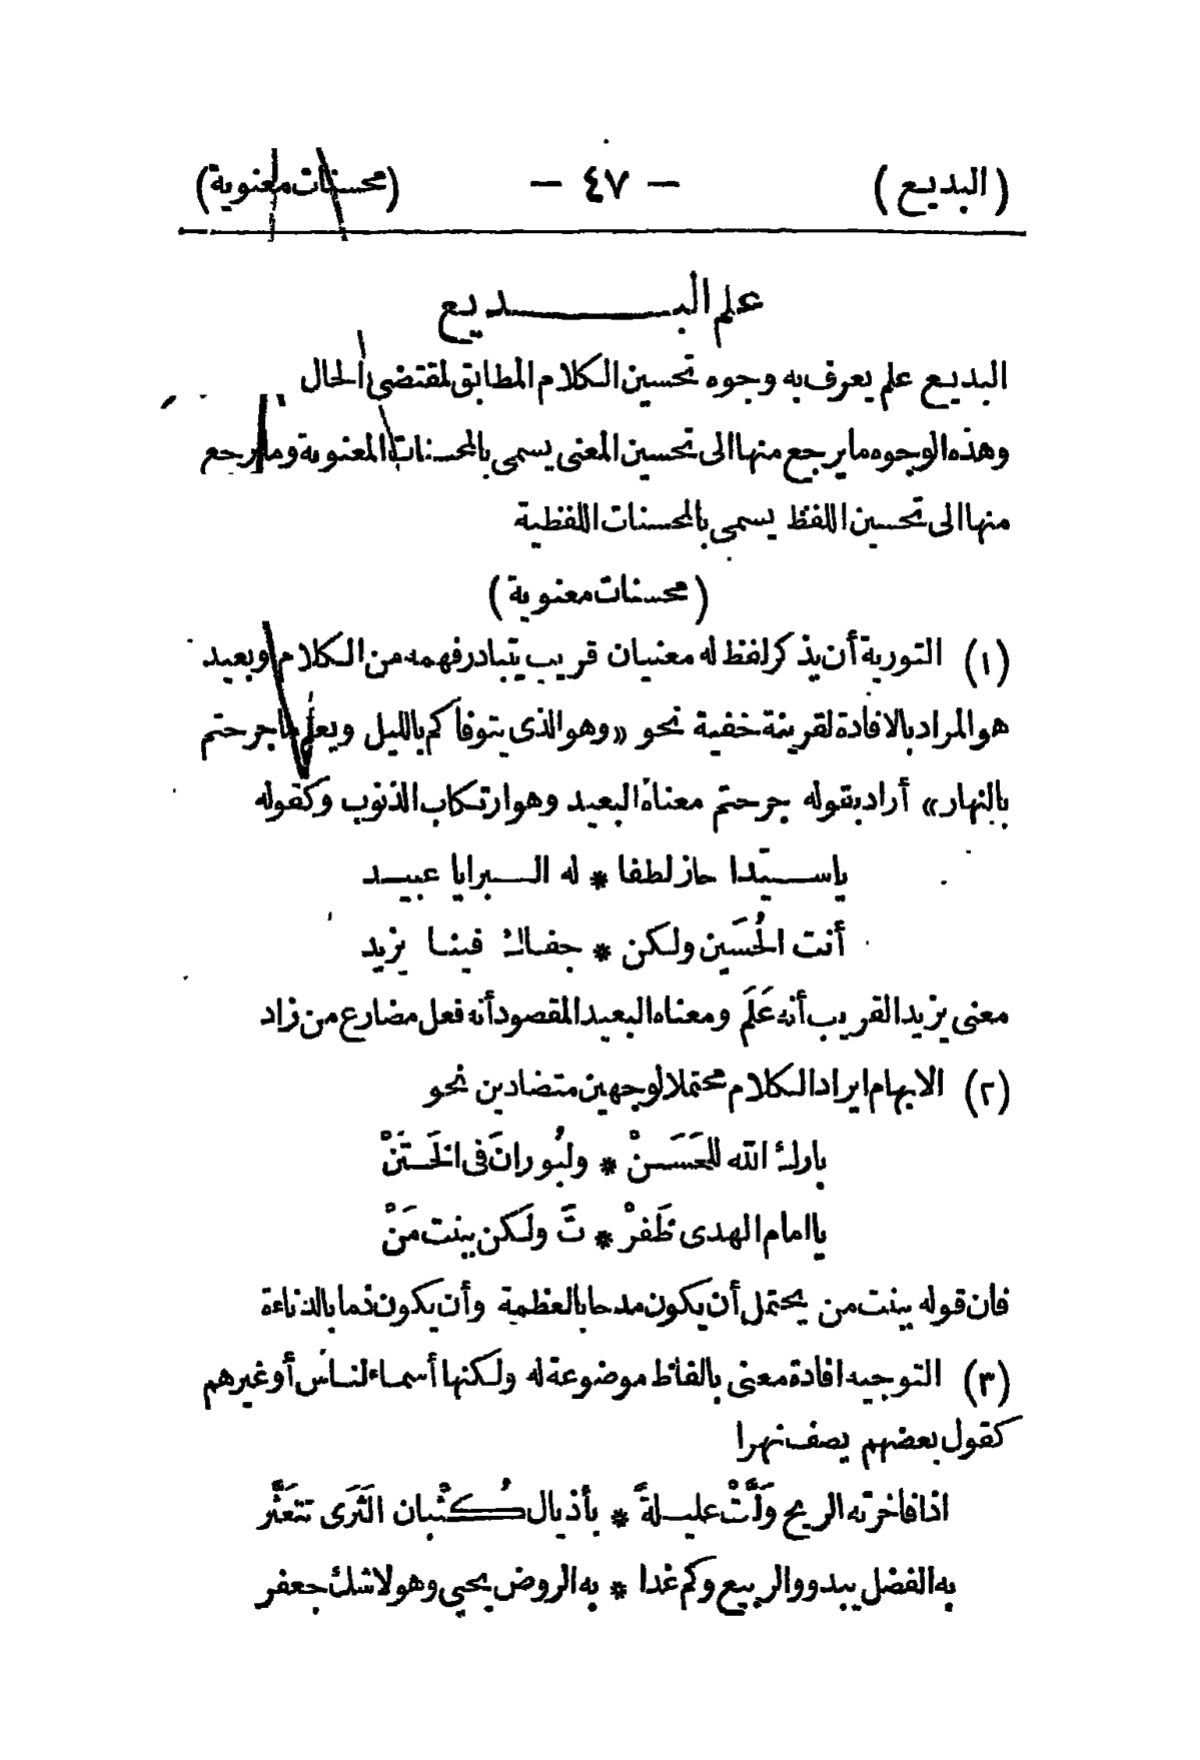 (البديع) - ٤٧ - (محسنات معنوية)
علم البـــــديع
البديع علم يعرف به وجوه تحسين الكلام المطابق لمقتضى الحال
وهذه الوجوه ما يرجع منها الى تحسين المعنى يسمى بالمحسنات المعنوية وما يرجع
منها الى تحسين اللفظ يسمى بالمحسنات اللفظية
(محسنات معنوية)
(١) التورية أن يذكر لفظ له معنيان قريب يتبادر فهمه من الكلام وبعيد
هو المراد بالافادة لقرينة خفية نحو «وهو الذى يتوفاكم بالليل ويعلم ما جرحتم
بالنهار» أراد بقوله جرحتم معناه البعيد وهو ارتكاب الذنوب وكقوله
ياســيّدا حاز لطفا * له الــبرايا عبيــد
أنت الحُسَين ولكن * جفاك فينا يزيد
معنى يزيد القريب أنه عَلَم ومعناه البعيد المقصود أنه فعل مضارع من زاد
(٢) الابهام ايراد الكلام محتملا لوجهين متضادين نحو
بارك الله للحَسَنْ * ولبُورانَ فى الخَتَنْ
يا امام الهدى ظَفِرْ * تَ ولكن ببنت مَنْ
فان قوله ببنت من يحتمل أن يكون مدحا بالعظمة وأن يكون ذما بالدناءة
(٣) التوجيه افادة معنى بالفاظ موضوعة له ولكنها أسماء لناس أو غيرهم
كقول بعضهم يصف نهرا
اذا فاخرته الريح وَلَّتْ عليلةً * بأذيال كُثْبان الثَرَى تتعَثَّر
به الفضل يبدو والربيع وكم غدا * به الروض يحيى وهو لاشك جعفر